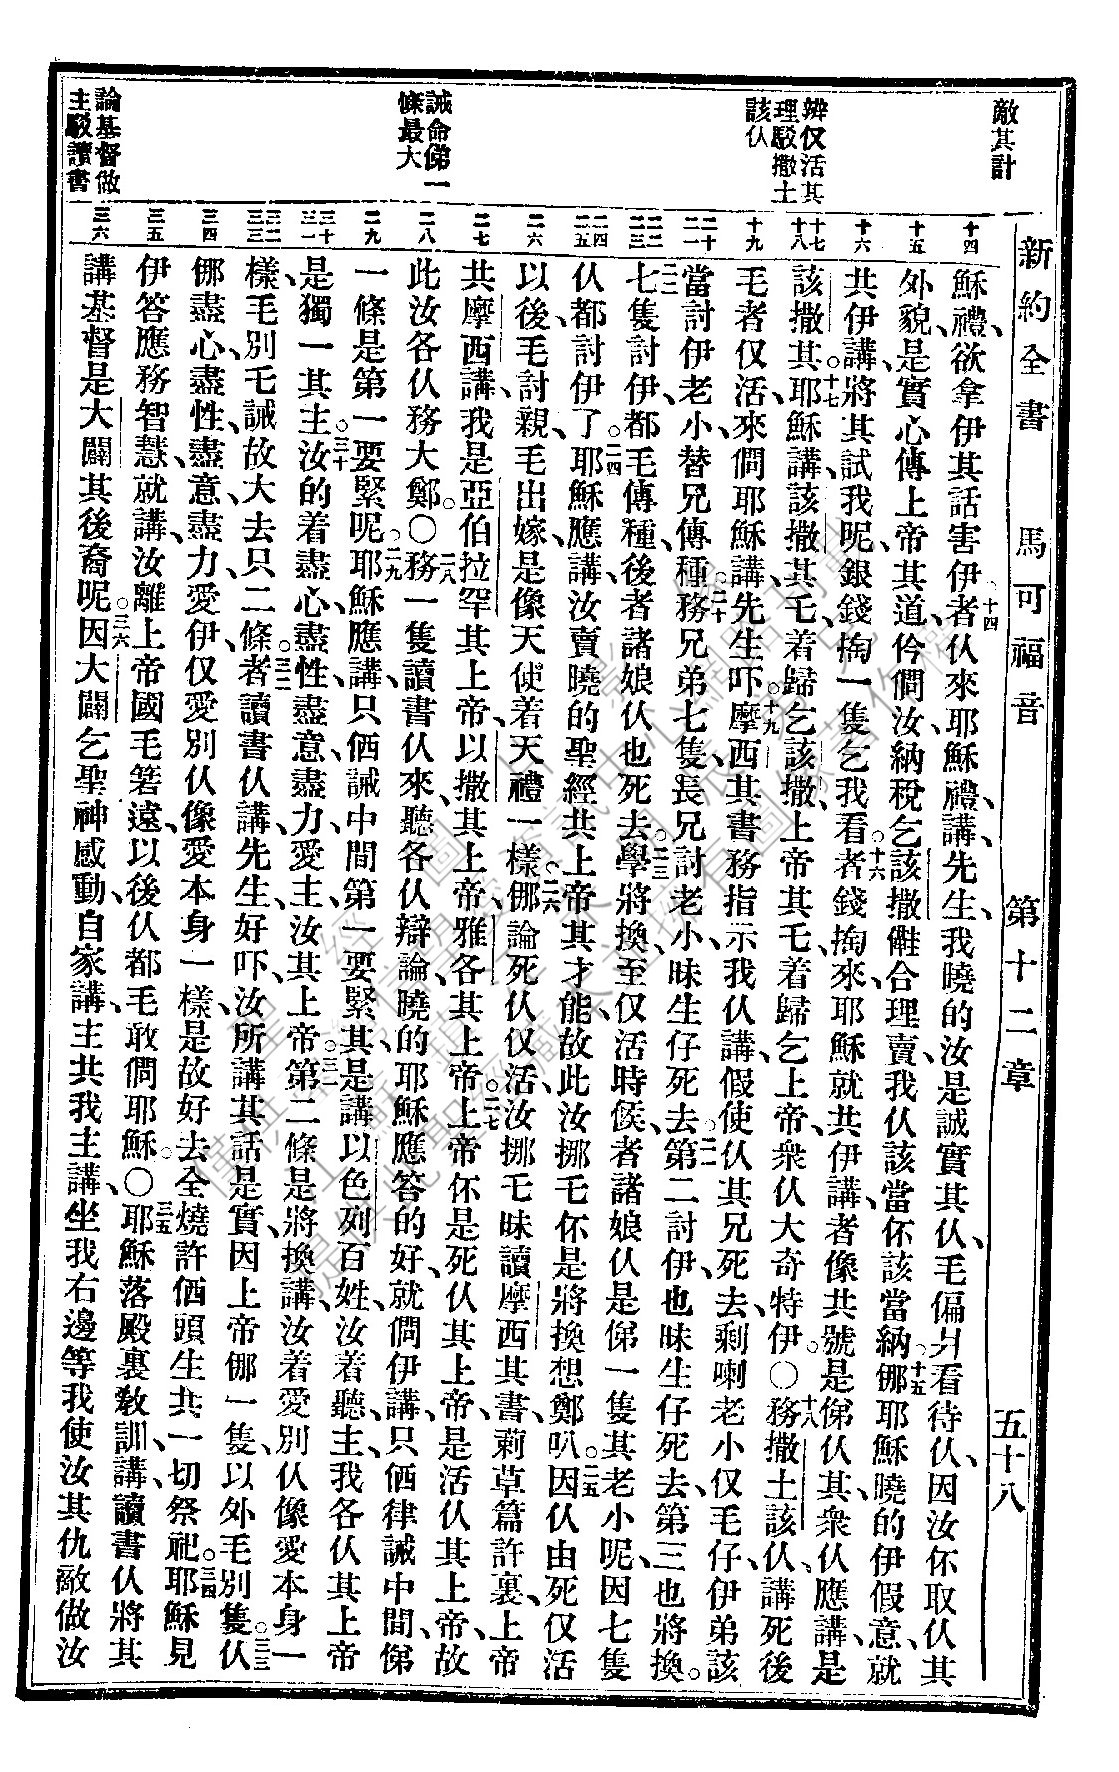 新約全書 馬可福音 第十二章 五十八
敵其計
辨仅活其
理駁撒土
該仈
誡命俤一
條最大
論基督做
主駁讀書
十四
十五
十六
十七
十八
十九
二十
二一
二二
二三
二四
二五
二六
二七
二八
二九
三十
三一
三二
三三
三四
三五
三六
穌禮、欲拿伊其話害伊、十四者仈來耶穌禮、講、先生、我曉的汝是誠實其仈、毛偏爿看待仈、因汝伓取仈其
外貌、是實心傳上帝其道、仱僩汝納稅乞該撒、儺合理賣、我仈該當伓該當納。十五㑚耶穌曉的伊假意、就
共伊講、將其試我呢、銀錢掏一隻乞我看。十六者錢掏來、耶穌就共伊講、者像共號是俤仈其、衆仈應講、是
該撒其。十七耶穌講、該撒其乇着歸乞該撒、上帝其乇着歸乞上帝、衆仈大奇特伊。〇十八務撒土該仈講死後
毛者仅活、來僩耶穌講、十九先生吓、摩西其書務指示我仈講、假使仈其兄死去、剩喇老小仅毛仔、伊弟該
當討伊老小、替兄傳種。二十務兄弟七隻、長兄討老小、昧生仔死去、二一第二討伊也昧生仔死去、第三也將換。
二二七隻討伊、都毛傳種、後者諸娘仈也死去。二三學將換、至仅活時候、者諸娘仈是俤一隻其老小呢、因七隻
仈都討伊了。二四耶穌應講、汝賣曉的聖經共上帝其才能、故此汝挪毛伓是將換想鄭叭。二五因仈由死仅活
以後、毛討親、毛出嫁、是像天使着天禮一樣。二六㑚論死仈仅活、汝挪乇昧讀摩西其書、莿草篇許裏、上帝
共摩西講、我是亞伯拉罕其上帝、以撒其上帝、雅各其上帝。二七上帝伓是死仈其上帝、是活仈其上帝、故
此汝各仈務大鄭。〇二八務一隻讀書仈來、聽各仈辯論、曉的耶穌應答的好、就僩伊講、只㑻律誡中間、俤
一條是第一要緊呢。二九耶穌應講、只㑻誡中間第一要緊其、是講、以色列百姓、汝着聽、主、我各仈其上帝
是獨一其主。三十汝的着盡心、盡性、盡意、盡力、愛主汝其上帝。三一第二條是將換講、汝着愛別仈像愛本身一
樣、毛別乇誡故大去只二條。三二者讀書仈講、先生、好吓、汝所講其話是實、因上帝㑚一隻、以外毛別隻。三三仈
㑚盡心、盡性、盡意、盡力、愛伊、仅愛別仈像愛本身一樣、是故好去全燒許㑻頭生共一切祭祀。三四耶穌見
伊答應務智慧、就講、汝離上帝國毛箬遠、以後仈都毛敢僩耶穌。〇三五耶穌落殿裏敎訓、講、讀書仈將其
講基督是大闢其後裔呢。三六因大闢乞聖神感動、自家講、主共我主講、坐我右邊、等我使汝其仇敵做汝